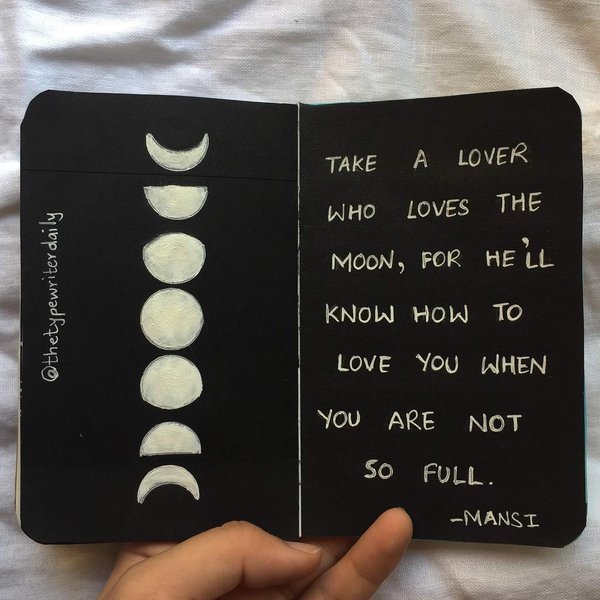 @thetypewriterdaily
TAKE A LOVER
WHO LOVES THE
MOON, FOR HE'LL
KNOW HOW TO
LOVE YOU WHEN
YOU ARE NOT
SO FULL.
-MANSI